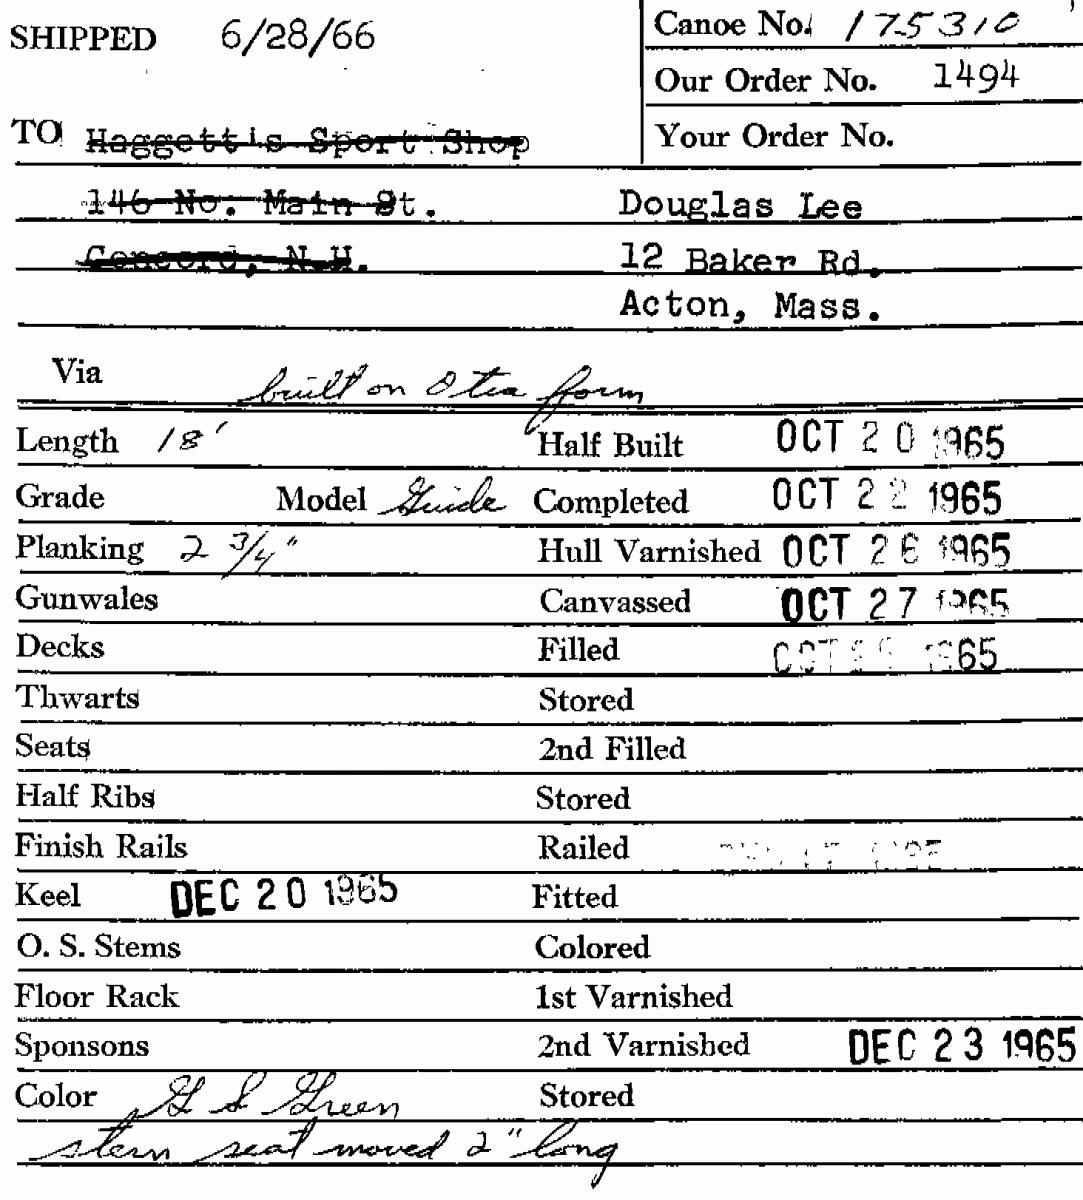 SHIPPED 6/28/66
Canoe No. 175310
Our Order No. 1494
Your Order No.
TO Haggett's Sport Shop
146 No. Main St.
Concord, N.H.
Douglas Lee
12 Baker Rd.
Acton, Mass.
Via built on Otca form
Length 18' Half Built OCT 20 1965
Grade Model Guide Completed OCT 22 1965
Planking 2 3/4" Hull Varnished OCT 26 1965
Gunwales Canvassed OCT 27 1965
Decks Filled OCT 1965
Thwarts Stored
Seats 2nd Filled
Half Ribs Stored
Finish Rails Railed
Keel DEC 20 1965 Fitted
O. S. Stems Colored
Floor Rack 1st Varnished
Sponsons 2nd Varnished DEC 23 1965
Color G S Green Stored
stern seat moved 2" long